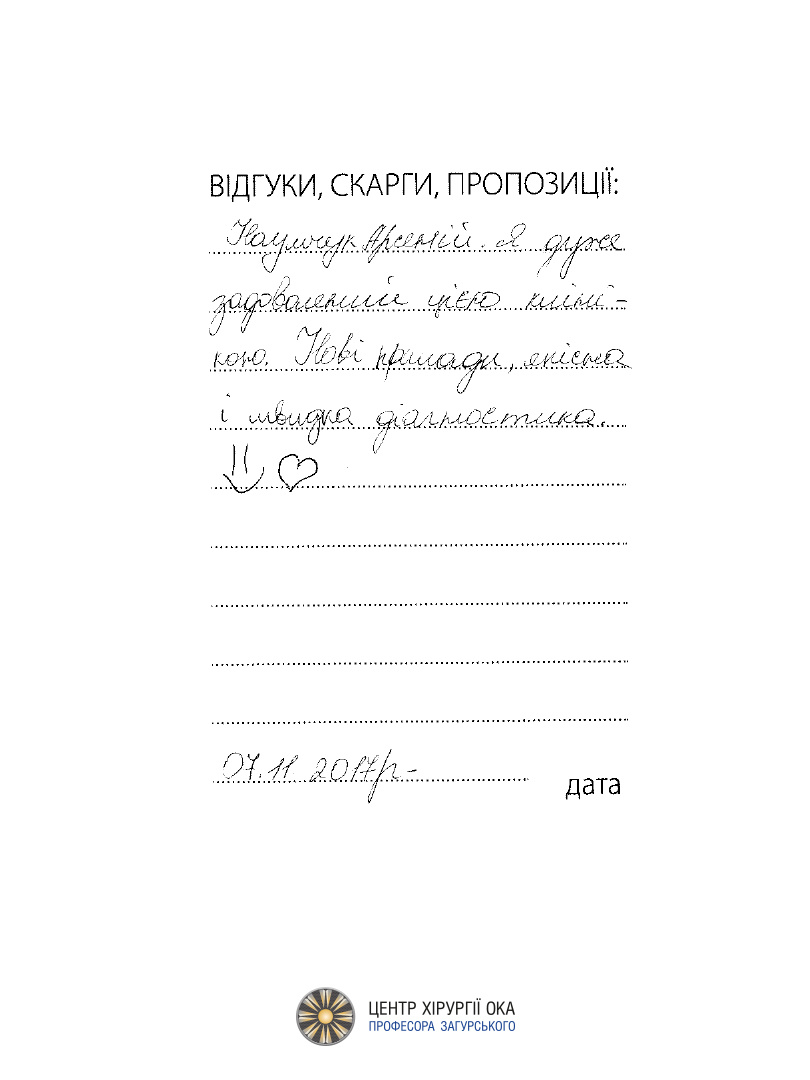 ВІДГУКИ, СКАРГИ, ПРОПОЗИЦІЇ:
Арсеній. Я дуже
задоволений цією кліні-
кою. Нові прилади, якісна
і швидка діагностика.
07.11 2017р-
дата
ЦЕНТР ХІРУРГІЇ ОКА
ПРОФЕСОРА ЗАГУРСЬКОГО